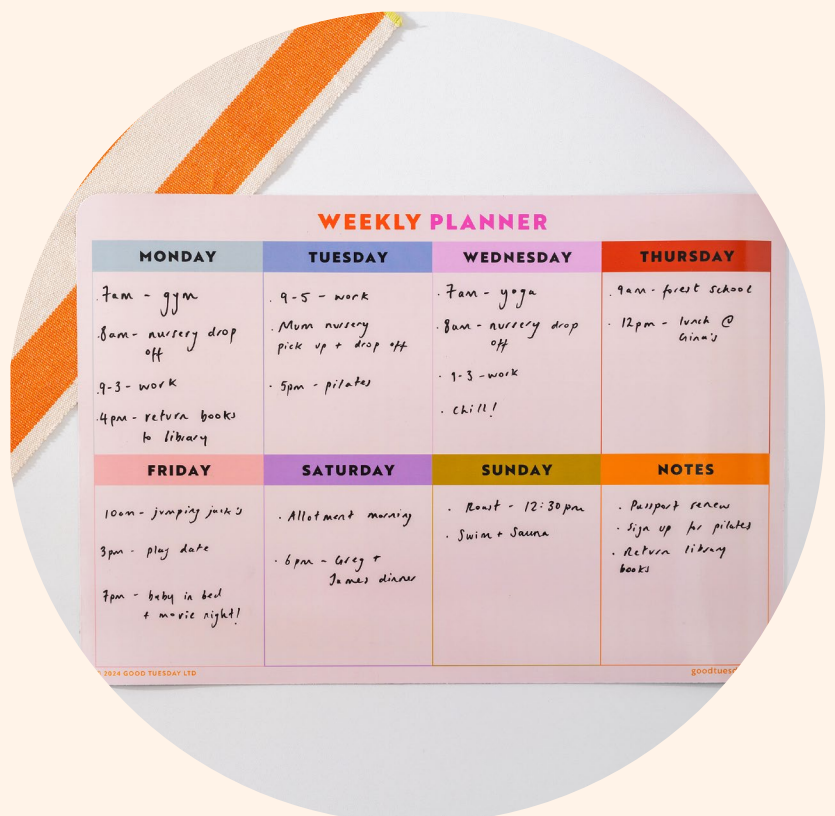 WEEKLY PLANNER
MONDAY
. 7am - gym
. 8am - nursery drop
off
. 9-3 - work
. 4pm - return books
to library
TUESDAY
. 9-5 - work
. Mum nursery
pick up + drop off
. 5pm - pilates
WEDNESDAY
. 7am - yoga
. 8am - nursery drop
off
. 9-3 - work
. Chill!
THURSDAY
. 9am - forest school
. 12pm - lunch @
Gina's
FRIDAY
10am - jumping jack's
3pm - play date
7pm - baby in bed
+ movie night!
SATURDAY
. Allotment morning
. 6pm - Greg +
James dinner
SUNDAY
. Roast - 12:30pm
. Swim + Sauna
NOTES
. Passport renew
. Sign up for pilates
. Return library
books
© 2024 GOOD TUESDAY LTD
goodtuesd